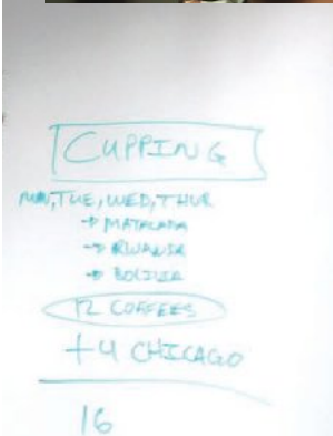 CUPPING
MON, TUE, WED, THUR
→ MATALAPA
→ RWANDA
→ BOLIVIA
12 COFFEES
+4 CHICAGO
16